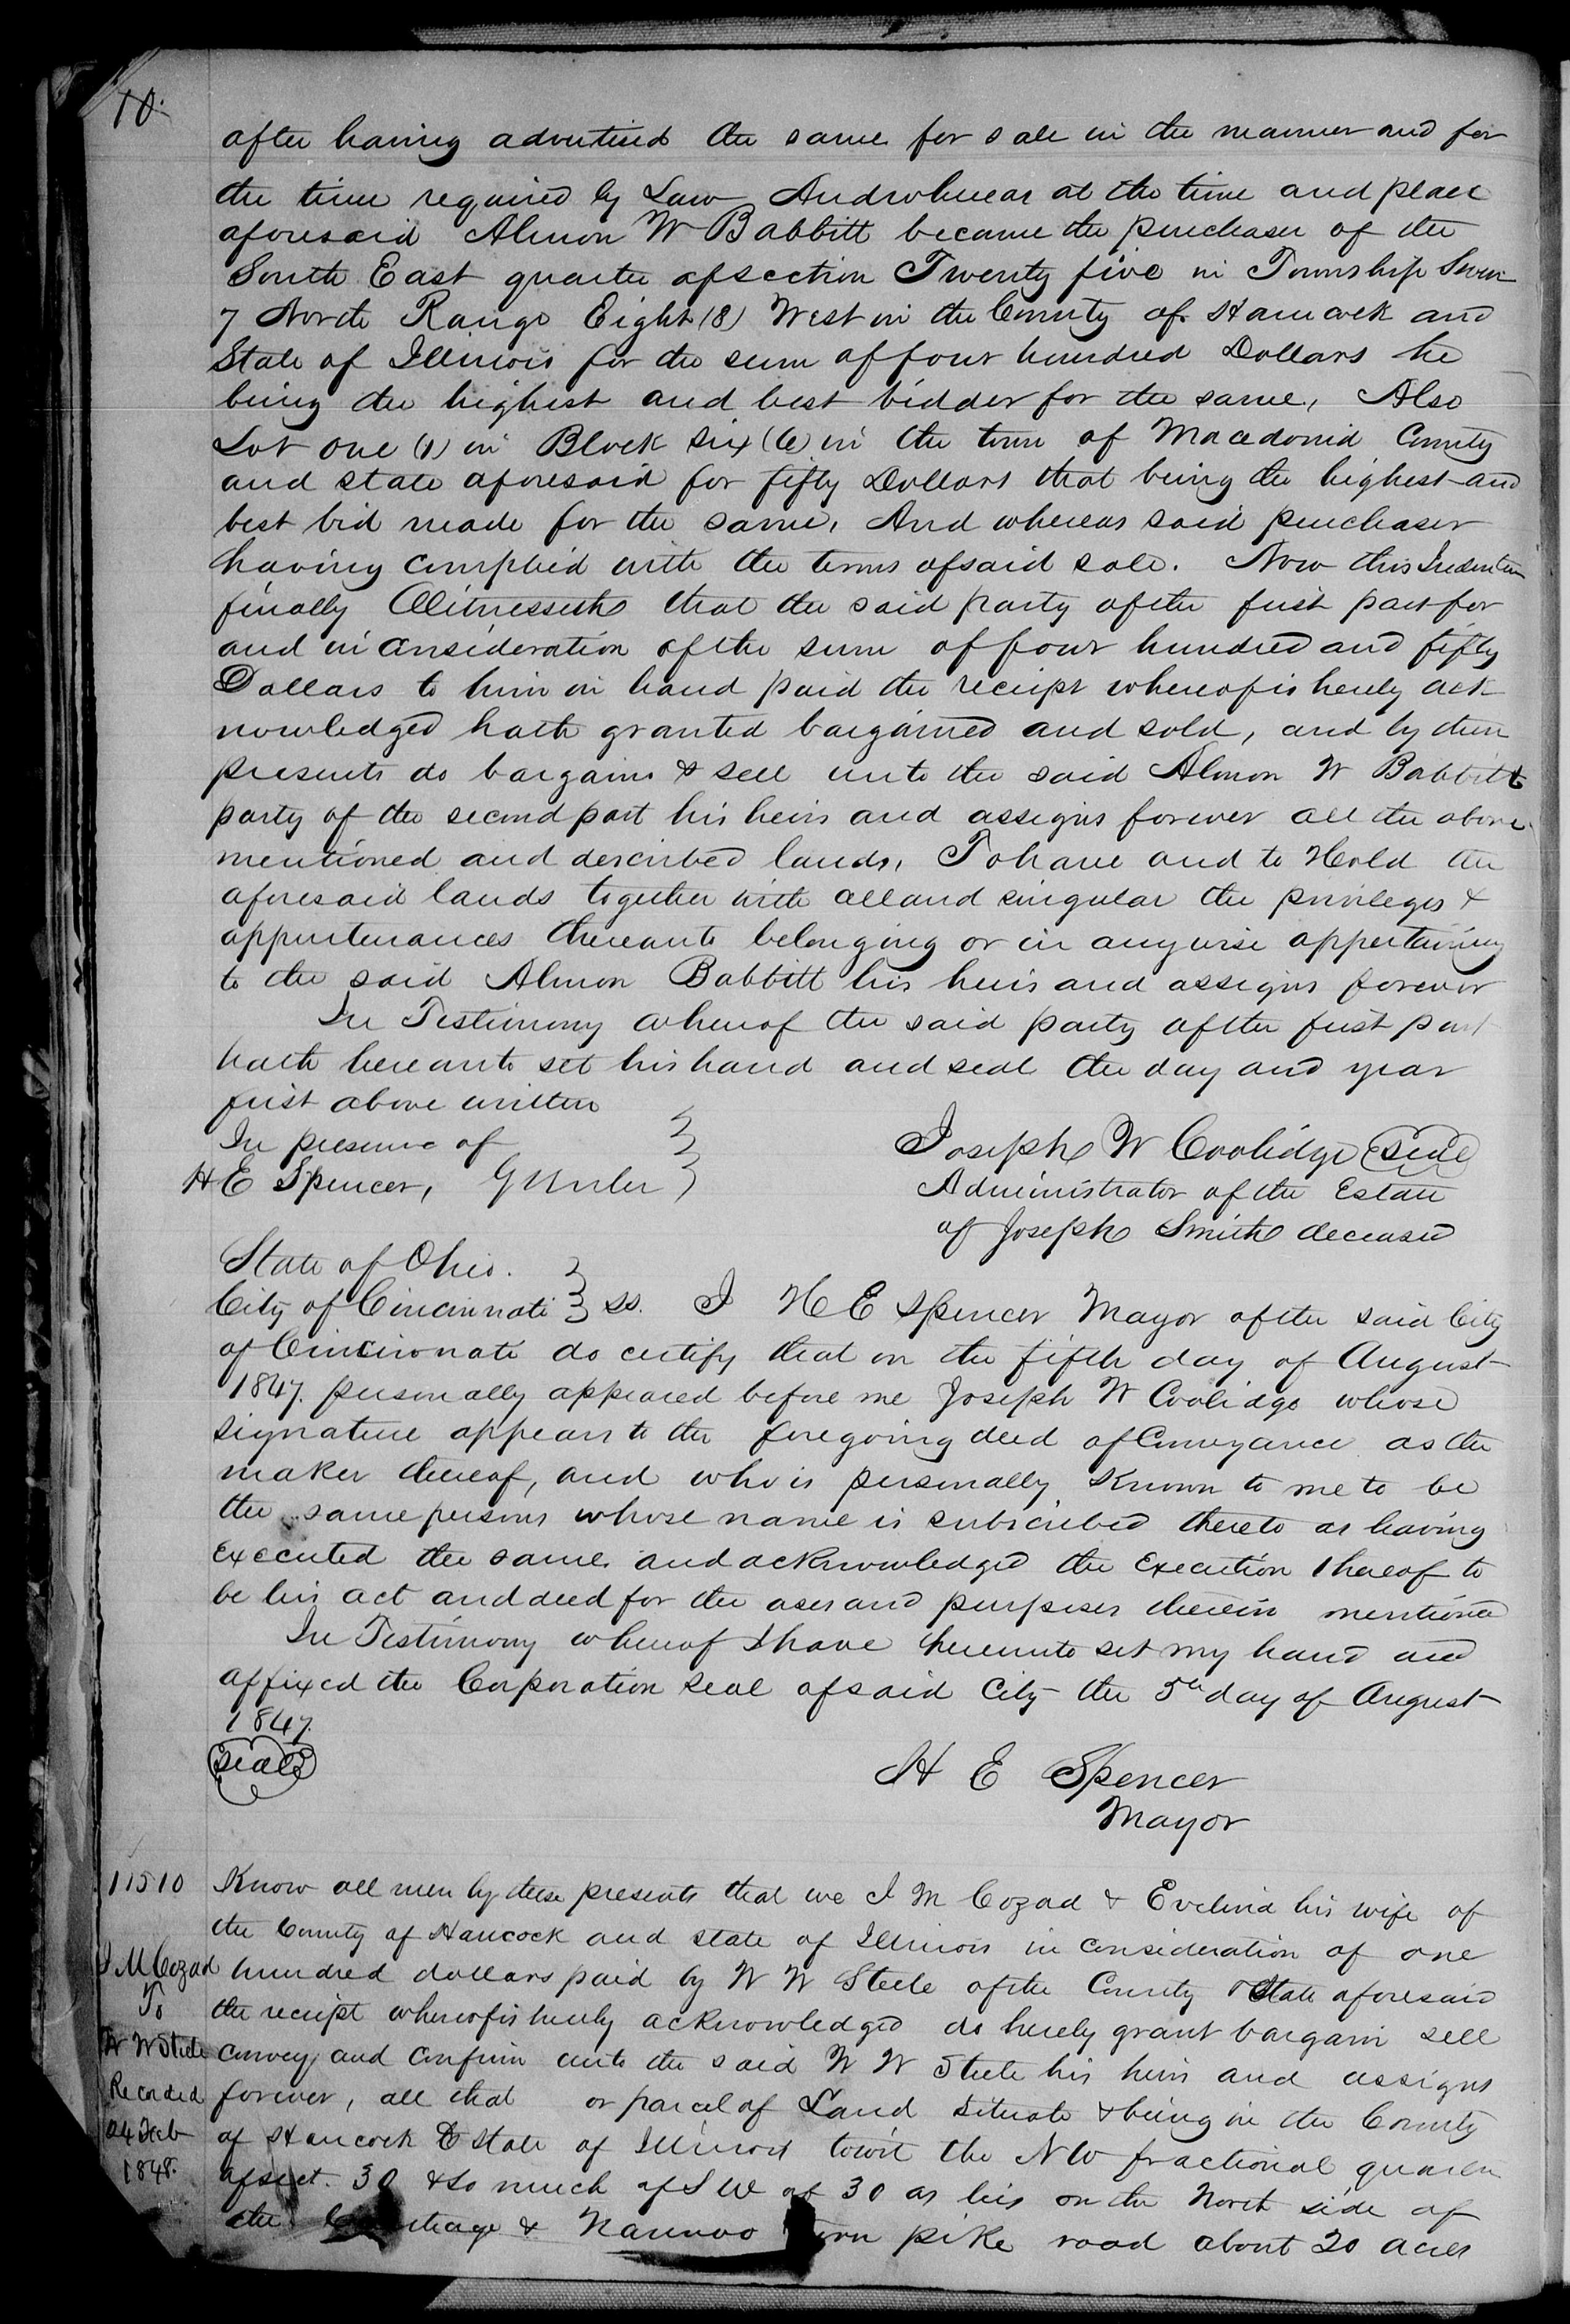 10.
after having advertised the same for sale in the manner and for
the time required by Law And whereas at the time and place
aforesaid Almon W Babbitt became the purchaser of the
South East quarter of section Twenty five in Township Seven
7 North Range Eight (8) West in the County of Hancock and
State of Illinois for the sum of four hundred Dollars he
being the highest and best bidder for the same, Also
Lot one (1) in Block six (6) in the town of Macedonia County
and state aforesaid for fifty Dollars that being the highest and
best bid made for the same, And whereas said purchaser
having complied with the terms of said sale. Now this Indenture
finally Witnesseth that the said party of the first part for
and in consideration of the sum of four hundred and fifty
Dollars to him in hand paid the receipt whereof is hereby ack
nowledged hath granted bargained and sold, and by these
presents do bargain & sell unto the said Almon W Babbitt
party of the second part his heirs and assigns forever all the above
mentioned and described lands, To have and to Hold the
aforesaid lands together with all and singular the privileges &
appurtenances thereunto belonging or in anywise appertaining
to the said Almon Babbitt his heirs and assigns forever
In Testimony whereof the said party of the first part
hath hereunto set his hand and seal the day and year
first above written
In presence of
H E Spencer,
Joseph W Coolidge seal
Administrator of the Estate
of Joseph Smith deceased
State of Ohio.
City of Cincinnati ss. I H E Spencer Mayor of the said City
of Cincinnati do certify that on the fifth day of August
1847. personally appeared before me Joseph W Coolidge whose
signature appears to the foregoing deed of Conveyance as the
maker thereof, and who is personally Known to me to be
the same persons whose name is subscribed thereto as having
executed the same and acknowledged the Execution thereof to
be his act and deed for the uses and purposes therein mentioned
In Testimony whereof I have hereunto set my hand and
affixed the Corporation seal of said City the 5th day of August
1847.
seal
H E Spencer
Mayor
11510
I M Cozad
To
W W Steele
Recorded
24 Feb
1848.
Know all men by these presents that we I M Cozad & Evelina his wife of
the County of Hancock and state of Illinois in consideration of one
hundred dollars paid by W W Steele of the County & State aforesaid
the receipt whereof is hereby acknowledged do hereby grant bargain sell
convey and confirm unto the said W W Steele his heirs and assigns
forever, all that or parcel of Land situate & being in the County
of Hancock & State of Illinois towit the NW fractional quarter
of sect. 30 & so much of S W of 30 as lies on the North side of
the Carthage & Nauvoo turn pike road about 20 acres